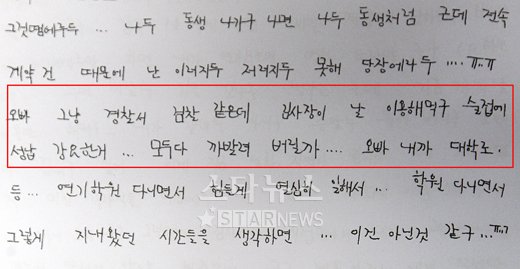 그것땜에두두 ... 나두 동생 나가구 나면 나두 동생처럼 근데 전속
계약건 때문에 난 이러지두 저러지두 못해 당장에라두 ....ㅠ.ㅠ
오빠 그냥 경찰서 검찰 같은데 김사장이 날 이용해먹구 술접에
성납 강요한거 ... 모두다 까발려 버릴까 .... 오빠 내까 대학로.
등 ... 연기학원 다니면서 힘들게 열심히 일해서 ... 학원 다니면서
스타뉴스
STARNEWS
그렇게 지내왔던 시간들을 생각하면 ... 이건 아닌것 같구 ...ㅠㅠ